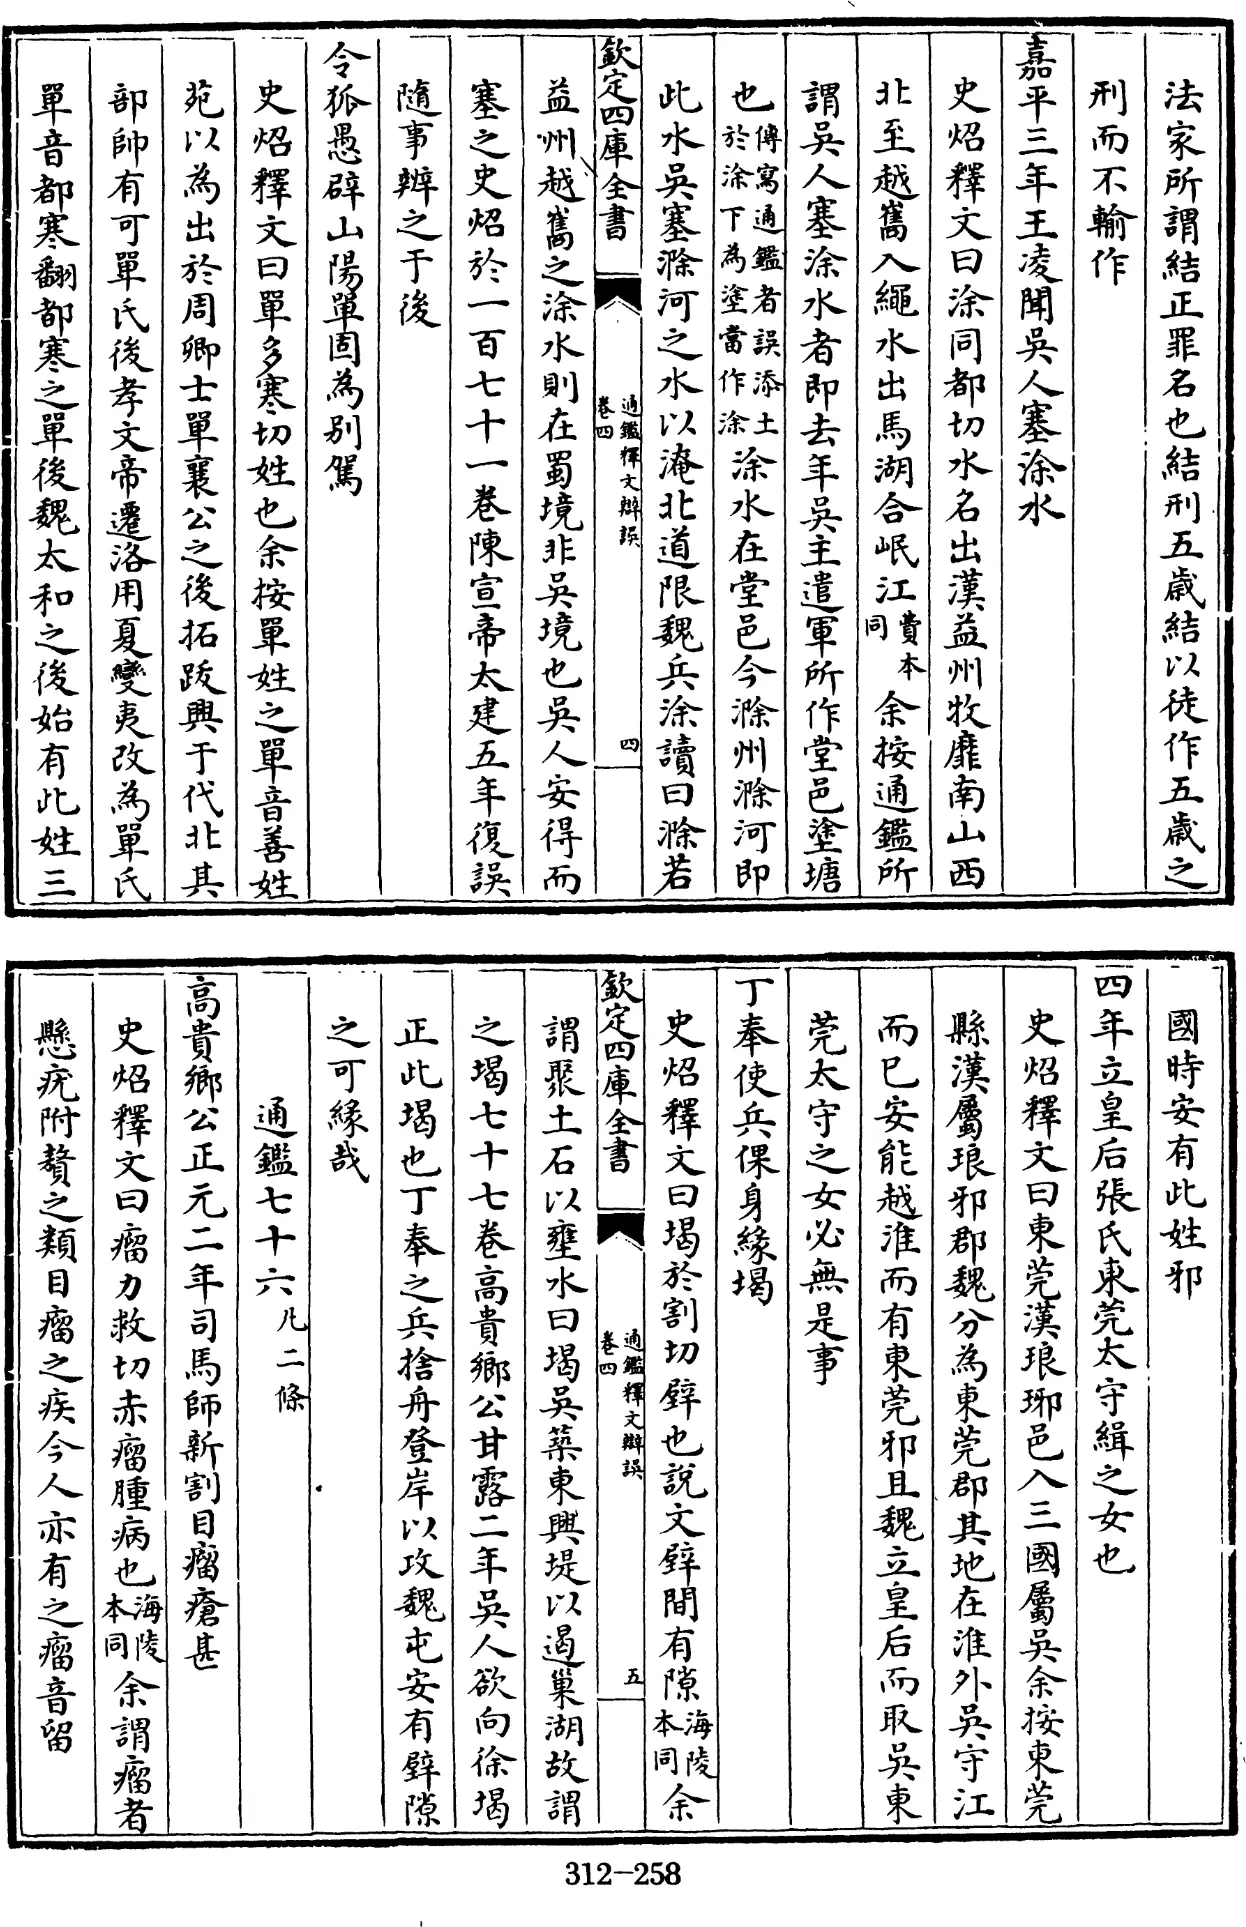 法家所謂結正罪名也結刑五歲結以徒作五歲之
刑而不輸作
嘉平三年王凌聞吳人塞涂水
史炤釋文曰涂同都切水名出漢益州牧靡南山西
北至越巂入繩水出馬湖合岷江費本同余按通鑑所
謂吳人塞涂水者即去年吳主遣軍所作堂邑塗塘
也傳寫通鑑者誤添土於涂下為塗當作涂涂水在堂邑今滁州滁河即
此水吳塞滁河之水以淹北道限魏兵涂讀曰滁若
欽定四庫全書
通鑑釋文辯誤
卷四
四
益州越巂之涂水則在蜀境非吳境也吳人安得而
塞之史炤於一百七十一卷陳宣帝太建五年復誤
隨事辨之于後
令狐愚辟山陽單固為別駕
史炤釋文曰單多寒切姓也余按單姓之單音善姓
苑以為出於周卿士單襄公之後拓跋興于代北其
部帥有可單氏後孝文帝遷洛用夏變夷改為單氏
單音都寒翻都寒之單後魏太和之後始有此姓三
國時安有此姓邪
四年立皇后張氏東莞太守緝之女也
史炤釋文曰東莞漢琅琊邑入三國屬吳余按東莞
縣漢屬琅邪郡魏分為東莞郡其地在淮外吳守江
而已安能越淮而有東莞邪且魏立皇后而取吳東
莞太守之女必無是事
丁奉使兵倮身緣堨
史炤釋文曰堨於割切壁也說文壁間有隙海陵本同余
欽定四庫全書
通鑑釋文辯誤
卷四
五
謂聚土石以壅水曰堨吳築東興堤以遏巢湖故謂
之堨七十七卷高貴鄉公甘露二年吳人欲向徐堨
正此堨也丁奉之兵捨舟登岸以攻魏屯安有壁隙
之可緣哉
通鑑七十六凡二條
高貴鄉公正元二年司馬師新割目瘤瘡甚
史炤釋文曰瘤力救切赤瘤腫病也海陵本同余謂瘤者
懸疣附贅之類目瘤之疾今人亦有之瘤音留
312-258